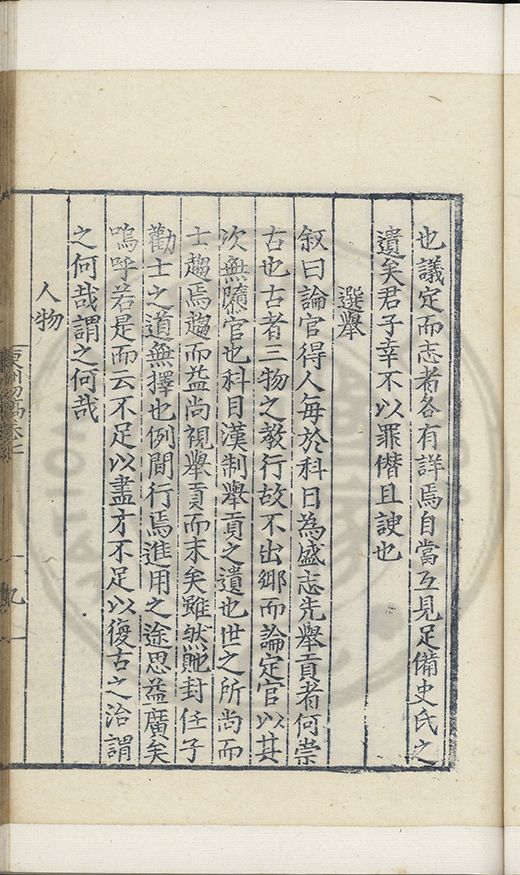 也議定而志者各有詳焉自當互見足備史氏之
遺矣君子幸不以罪僭且諛也
選舉
叙曰論官得人每於科目為盛志先舉貢者何崇
古也古者三物之教行故不出鄉而論定官以其
次無隳官也科目漢制舉貢之遺也世之所尚而
士趨焉趨而益尚視舉貢而末矣雖然貤封任子
勸士之道無擇也例間行焉進用之途思益廣矣
嗚呼若是而云不足以盡才不足以復古之治謂
之何哉謂之何哉
人物
九